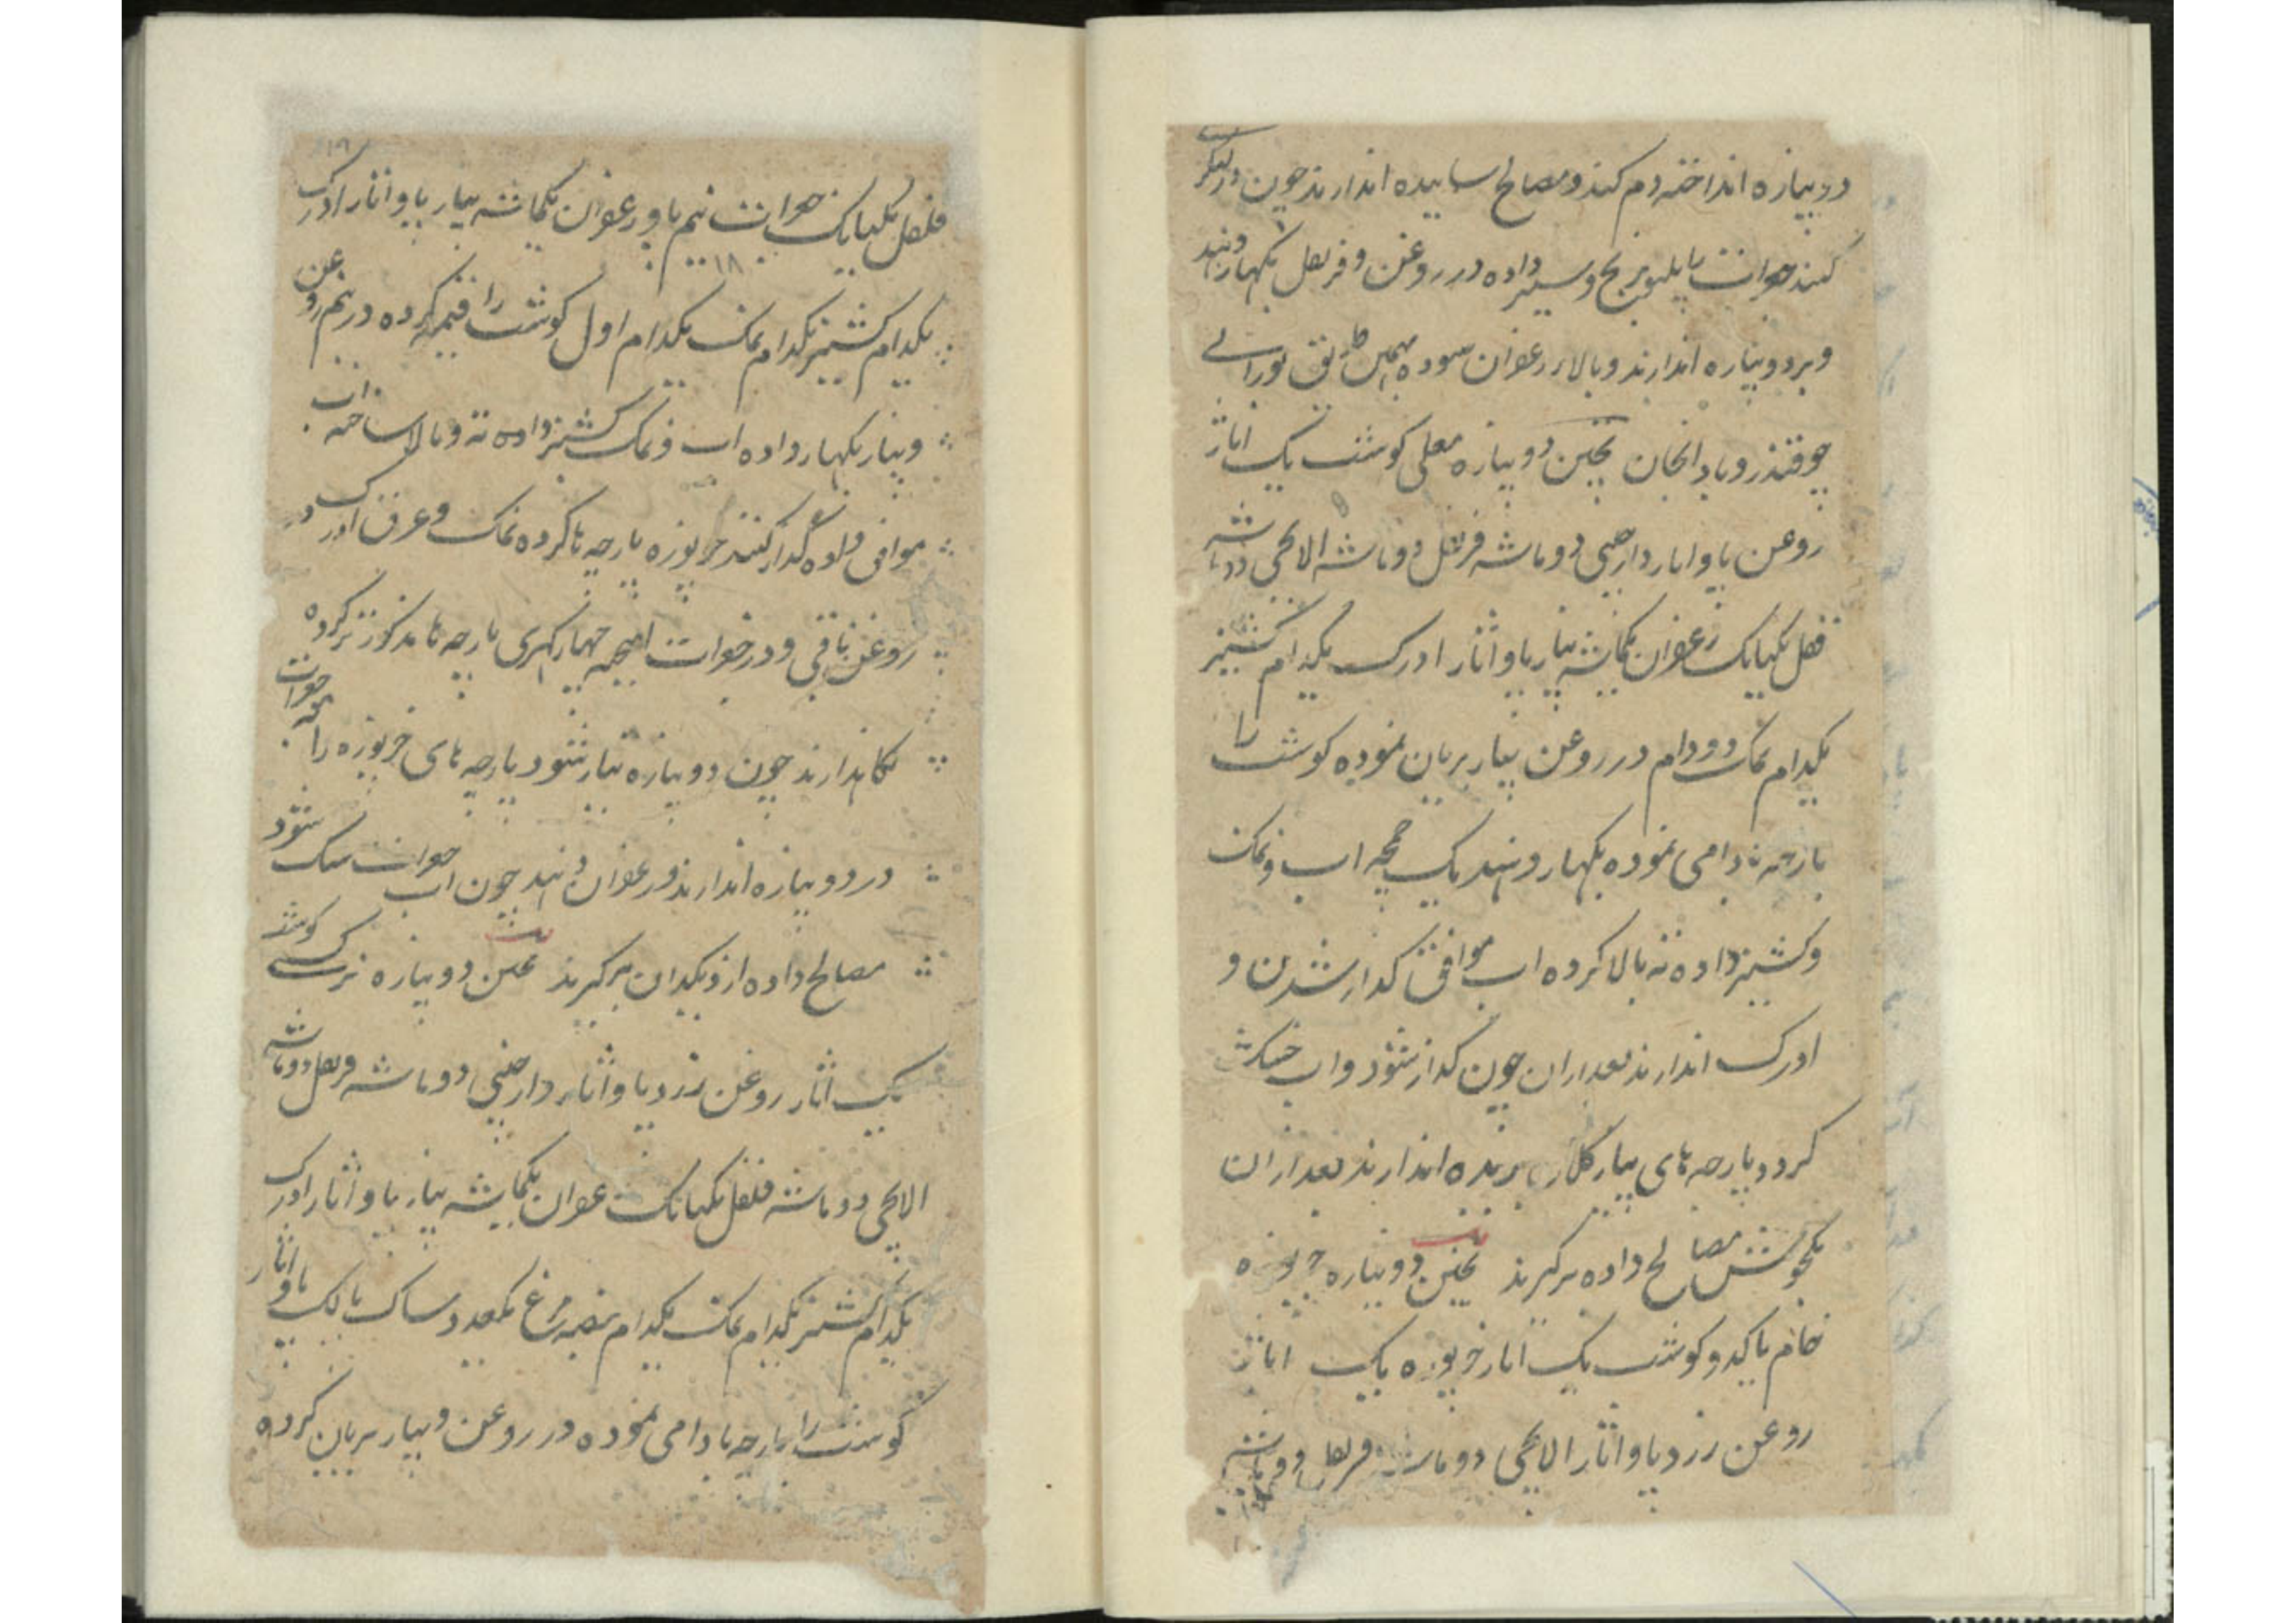 در دوپیازه انداخته دم کنند و مصالح ساییده اندازند چون در دیگر
کنند جغرات را پلیون برنج و سیر داده در روغن و قرنفل بگهار دهند
و بر دوپیازه اندازند و بالاء زعفران سوده بهمین طریق تورائی
چوقندر و بادنجان پختن دوپیازه معلی گوشت یک اثار
روغن پاو اثار دارچینی دو ماشه قرنفل دو ماشه الایچی دو ماشه
فلفل یکپاتک زعفران یکماشه پیاز پاو اثار ادرک یکدام کشنیز
یکدام نمک دو دام در روغن پیاز بریان نموده گوشت را
پارچه بادامی نموده بگهار دهند یک چمچه اب و نمک
و کشنیز داده ته بالا کرده اب موافق گداز شدن و
ادرک اندازند بعد ازان چون گداز شود و اب خشک
گردد پارچه های پیاز کلان برنده اندازند بعد ازان
یکجوش مصالح داده برگیرند پختن دوپیازه خربوزه
خام یا کدو گوشت یک اثار خربوزه یک اثار
روغن زرد پاو اثار الایچی دو ماشه قرنفل دو ماشه
فلفل یکپاتک جغرات نیم پاو زعفران یکماشه پیاز پاو اثار ادرک
۱۸
یکدام کشنیز یکدام نمک یکدام اول گوشت را قیمه کرده در نیم روغن
و پیاز بگهار داده اب و نمک کشنیز داده ته و بالا ساخته اب
موافق داده گداز کنند خربوزه پارچه ها کرده نمک و عرق ادرک در
روغن باقی و در جغرات امیخته چهار گهری پارچه ها مذکور تر کرده
نگاهدارند چون دوپیازه تیار شود پارچه های خربوزه را مع جغرات
در دوپیازه اندازند و زعفران دهند چون اب جغرات خشک شود
مصالح داده از دیگدان برگیرند پختن دوپیازه نرگسی گوشت
یک اثار روغن زرد پاو اثار دارچینی دو ماشه قرنفل دو ماشه
الایچی دو ماشه فلفل یکپاتک زعفران یکماشه پیاز پاو اثار ادرک
یکدام کشنیز یکدام نمک یکدام بیضه مرغ ساک پالک پاو اثار
گوشت را پارچه بادامی نموده در روغن و پیاز بریان کرده